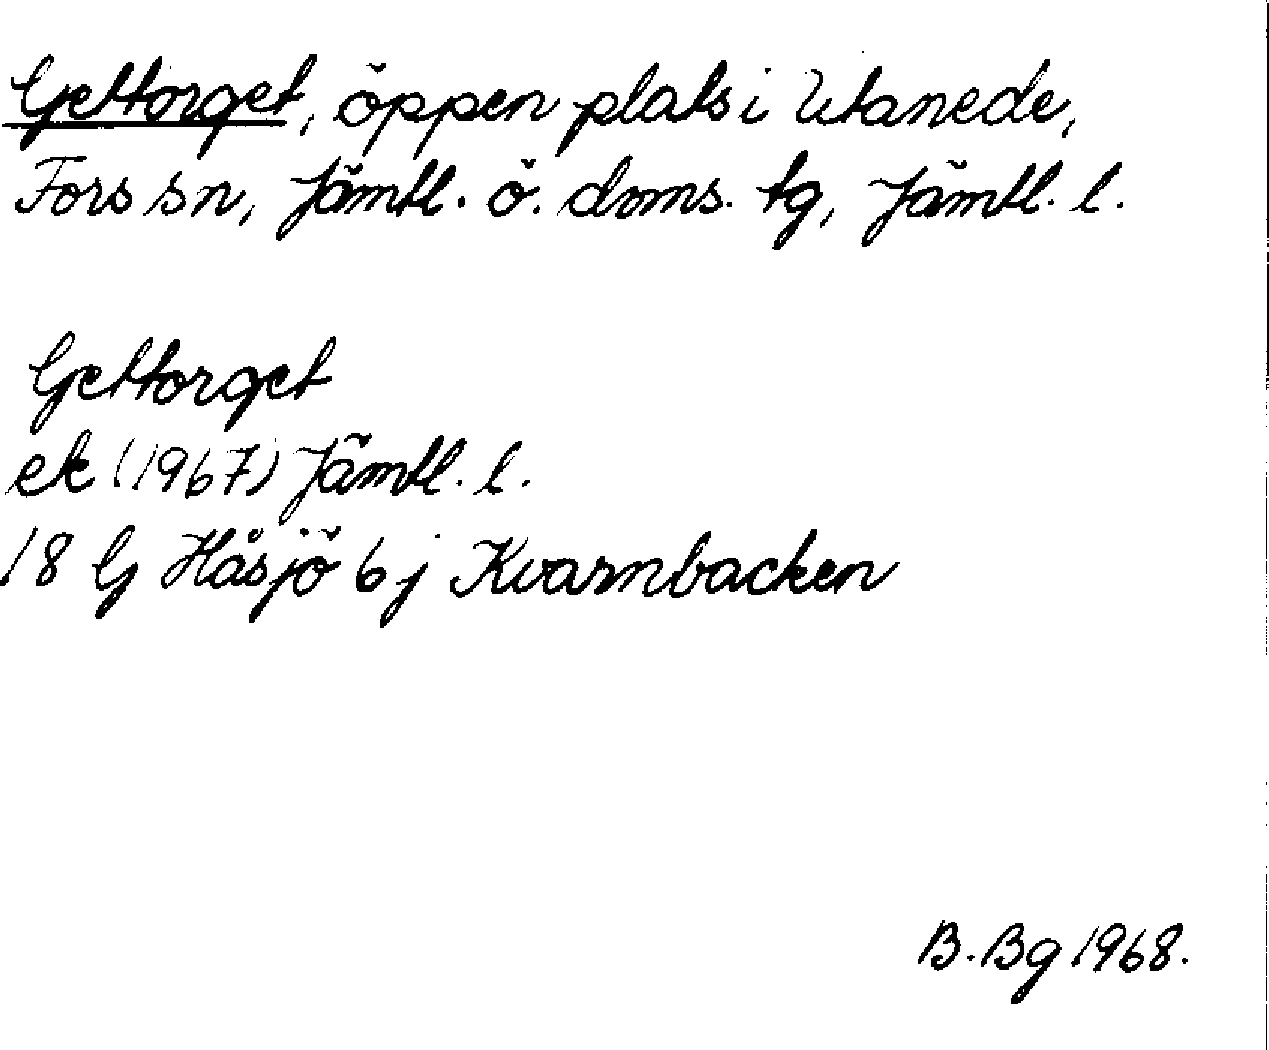 Gettorget, öppen plats i Utanede,
Fors sn, Jämtl. ö. doms. tg, Jämtl. l.
Gettorget
ek (1967) Jämtl. l.
18 G Håsjö 6 j Kvarnbacken
B. Bg 1968.